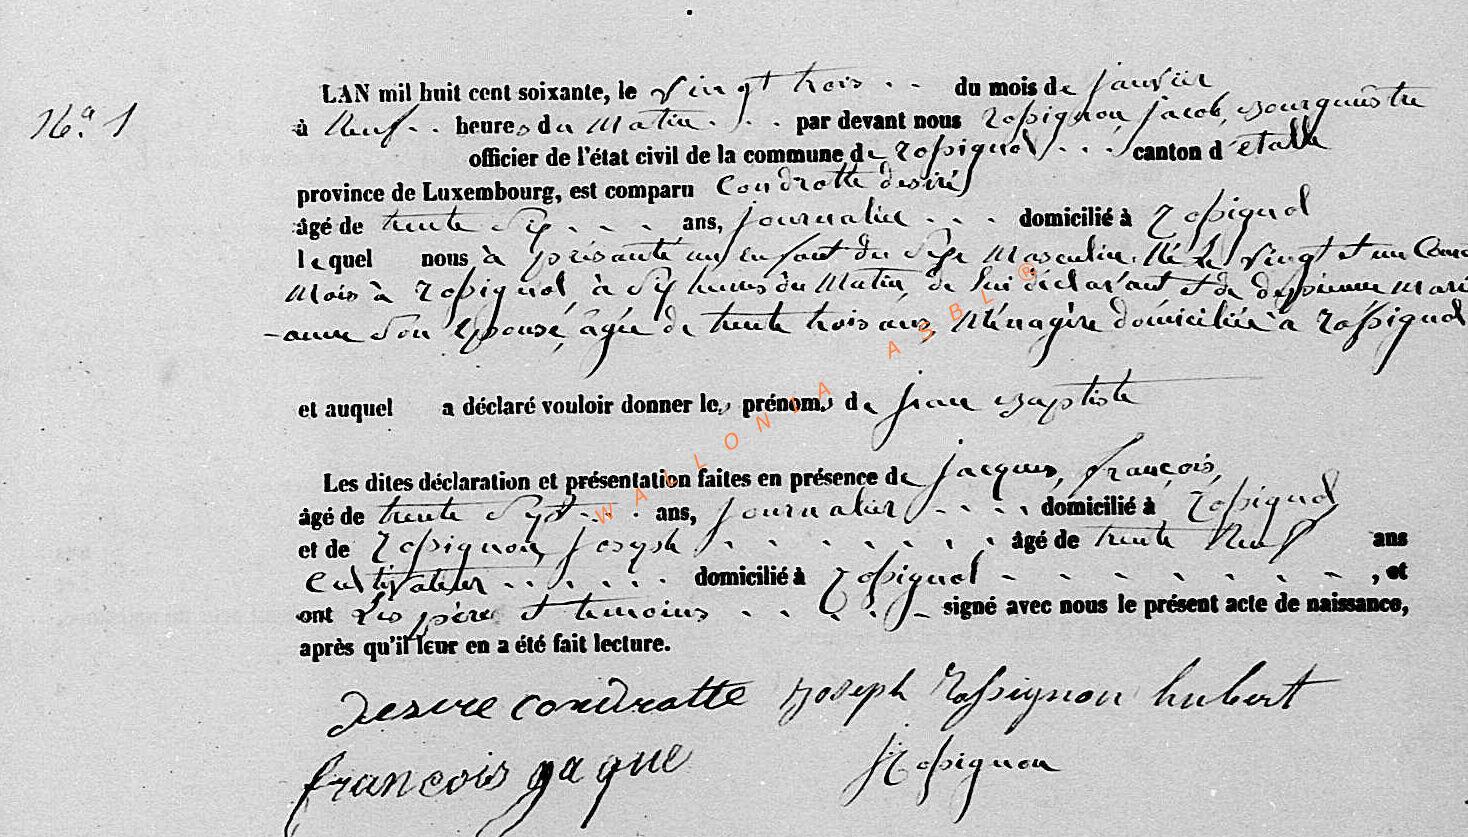 N.º 1
LAN mil huit cent soixante, le vingt trois du mois de janvier
à neuf heures du matin par devant nous Rossignon, jacob, Bourguestre
officier de l'état civil de la commune de Rossignol canton d'étalle
province de Luxembourg, est comparu Condrotte desiré
âgé de trente six ans, journalier domicilié à Rossignol
lequel nous à présenté un enfant du sexe masculin. Né le vingt et un
mois à Rossignol, à six heures du matin, de lui déclarant et de dessienne mari
-anne son épouse, âgée de trente trois ans, ménagère domiciliée à Rossignol
et auquel a déclaré vouloir donner les prénoms de jean Baptiste
Les dites déclaration et présentation faites en présence de jacques, françois,
âgé de trente sept ans, journalier domicilié à Rossignol
et de Rossignon, joseph âgé de trente neuf ans
cultivateur domicilié à Rossignol , et
ont les père et temoins signé avec nous le présent acte de naissance,
après qu'il leur en a été fait lecture.
desire condrotte joseph Rossignon hubert
francois gaque Rossignon
WALLONIA ASBL ®